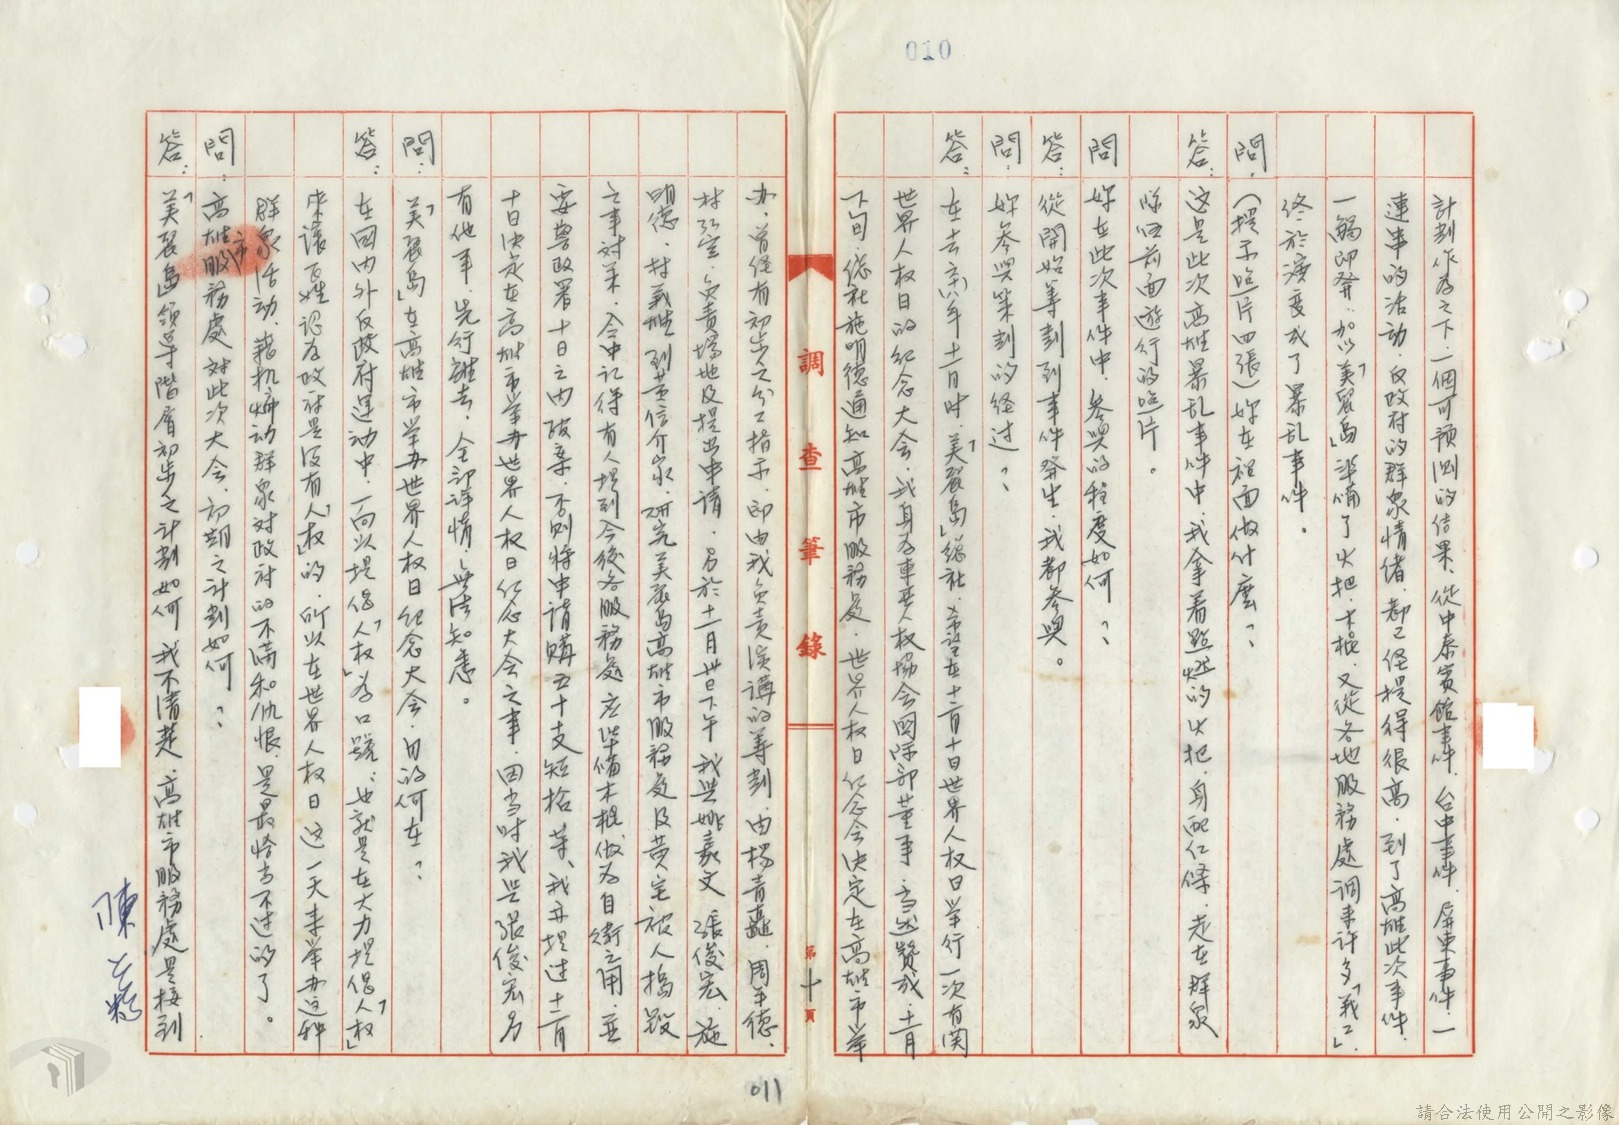 010
計划作为之下.一個可預測的结果.從中泰賓館事件.台中事件.屏東事件.一
連串的活动.反政府的群衆情绪.都已经提得很高.到了高雄此次事件.
一觸即發.加以「美麗島」準備了火把.木棍.又從各地服務處调来许多「義工」.
终於演变成了暴乱事件。
問.(提示照片四張)妳在裡面做什麼?
答:這是此次高雄暴乱事件中.我拿着點燃的火把.身配红條.走在群衆
隊伍前面遊行的照片。
問 妳在此次事件中.参與的程度如何?
答:從開始筹划到事件發生.我都参與。
問:妳参與策划的经过?
答:在去(六八)年十一月時.「美麗島」總社.希望在十二月十日世界人权日举行一次有関
世界人权日的纪念大会.我身为車里人权協会国际部董事.当然贊成.十一月
下旬.總社施明德通知高雄市服務處.世界人权日纪念会决定在高雄市举
調查筆錄
第十頁
办.曾经有初步之分工指示.即由我负责演講的筹划.由楊青矗.周平德.
林弘宣.负责場地及提出申请.另於十一月卅日下午 我與姚嘉文 張俊宏.施
明德.林義雄 到黄信介家.研究美麗島高雄市服務處及黄宅被人搗毀
之事对策.会中记得有人提到今後各服務處应準備木棍.做为自衛之用.並
要警政署十日之内破案.否则将申请購五十支短枪等.我亦提过十二月
十日决定在高雄市举办世界人权日纪念大会之事.因当时我與張俊宏另
有他事.先行離去.全部详情.無法知悉。
問:「美麗島」在高雄市举办世界人权日纪念大会.目的何在?
答:在国内外反政府運动中.一向以提倡「人权」为口號.也就是在大力提倡「人权」
来讓百姓认为政府是没有「人权」的.所以在世界人权日這一天来举办這种
群衆活动.藉机煽动群衆对政府的不满和仇恨.是最恰当不过的了。
問:高雄市服務處对此次大会.初期之计划如何?
答:「美麗島」領导階層初步之计划如何 我不清楚.高雄市服務處是接到
陳
011
請合法使用公開之影像